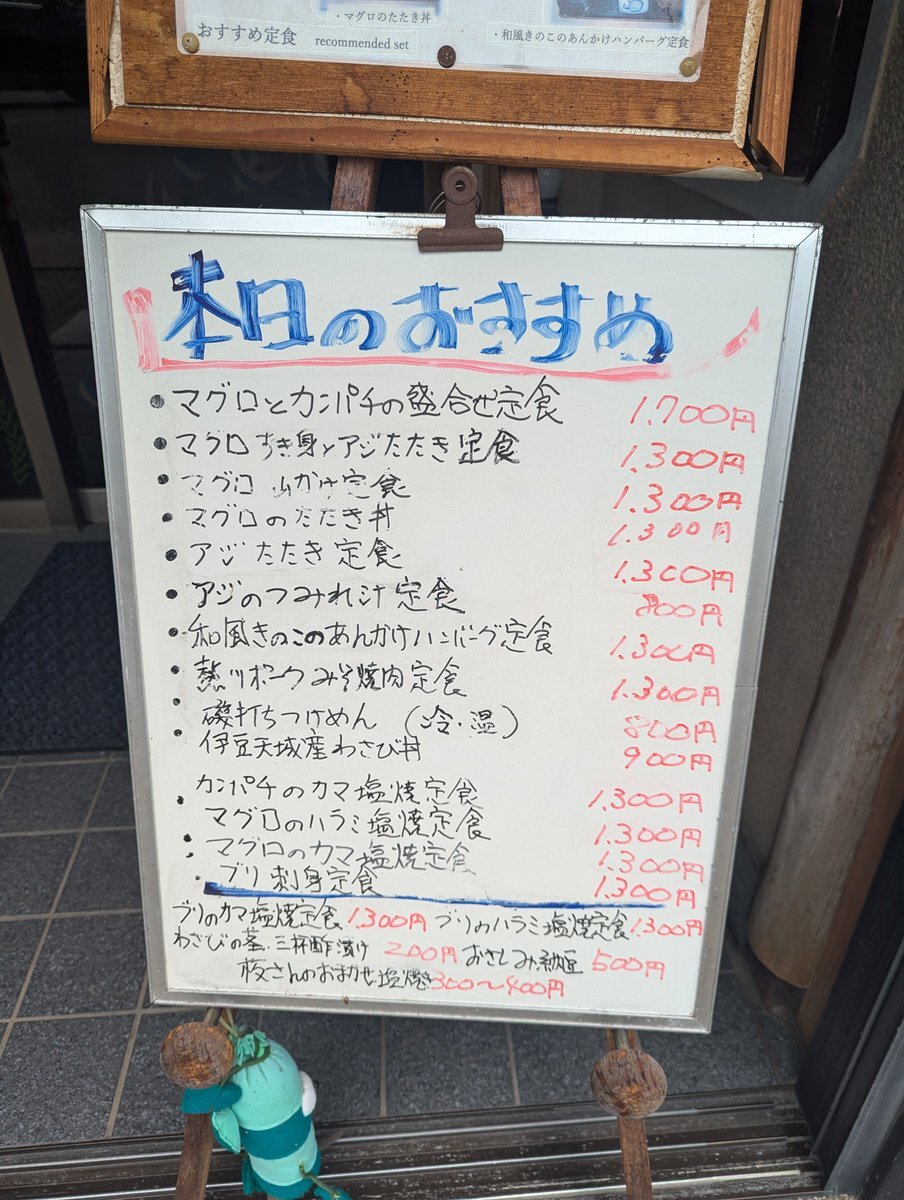 ・マグロのたたき丼
おすすめ定食 recommended set
・和風きのこのあんかけハンバーグ定食
本日のおすすめ
・マグロとカンパチの盛合せ定食 1.700円
・マグロすき身とアジたたき定食 1.300円
・マグロ山かけ定食 1.300円
・マグロのたたき丼 1.300円
・アジたたき定食 1.300円
・アジのつみれ汁定食 800円
・和風きのこのあんかけハンバーグ定食 1.300円
・熱々ポークみそ焼肉定食 1.300円
・磯打ちつけめん (冷・温) 800円
・伊豆天城産わさび丼 900円
カンパチのカマ塩焼定食 1.300円
・マグロのハラミ塩焼定食 1.300円
・マグロのカマ塩焼定食 1.300円
・ブリ刺身定食 1.300円
ブリのカマ塩焼定食 1.300円 ブリのハラミ塩焼定食 1.300円
わさびの茎 三杯酢漬け 200円 おさしみ納豆 500円
板さんのおまかせ塩焼き 300〜400円